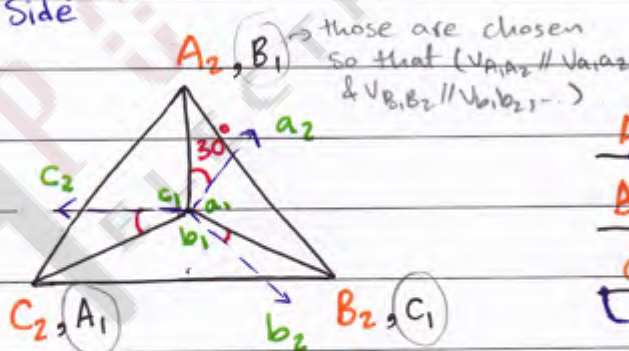 Side
those are chosen
so that (V_{A1A2} // V_{a1a2}
& V_{B1B2} // V_{b1b2}, ...)
A2, B1
30°
a2
c2
c1
a1
b1
C2, A1
B2, C1
b2